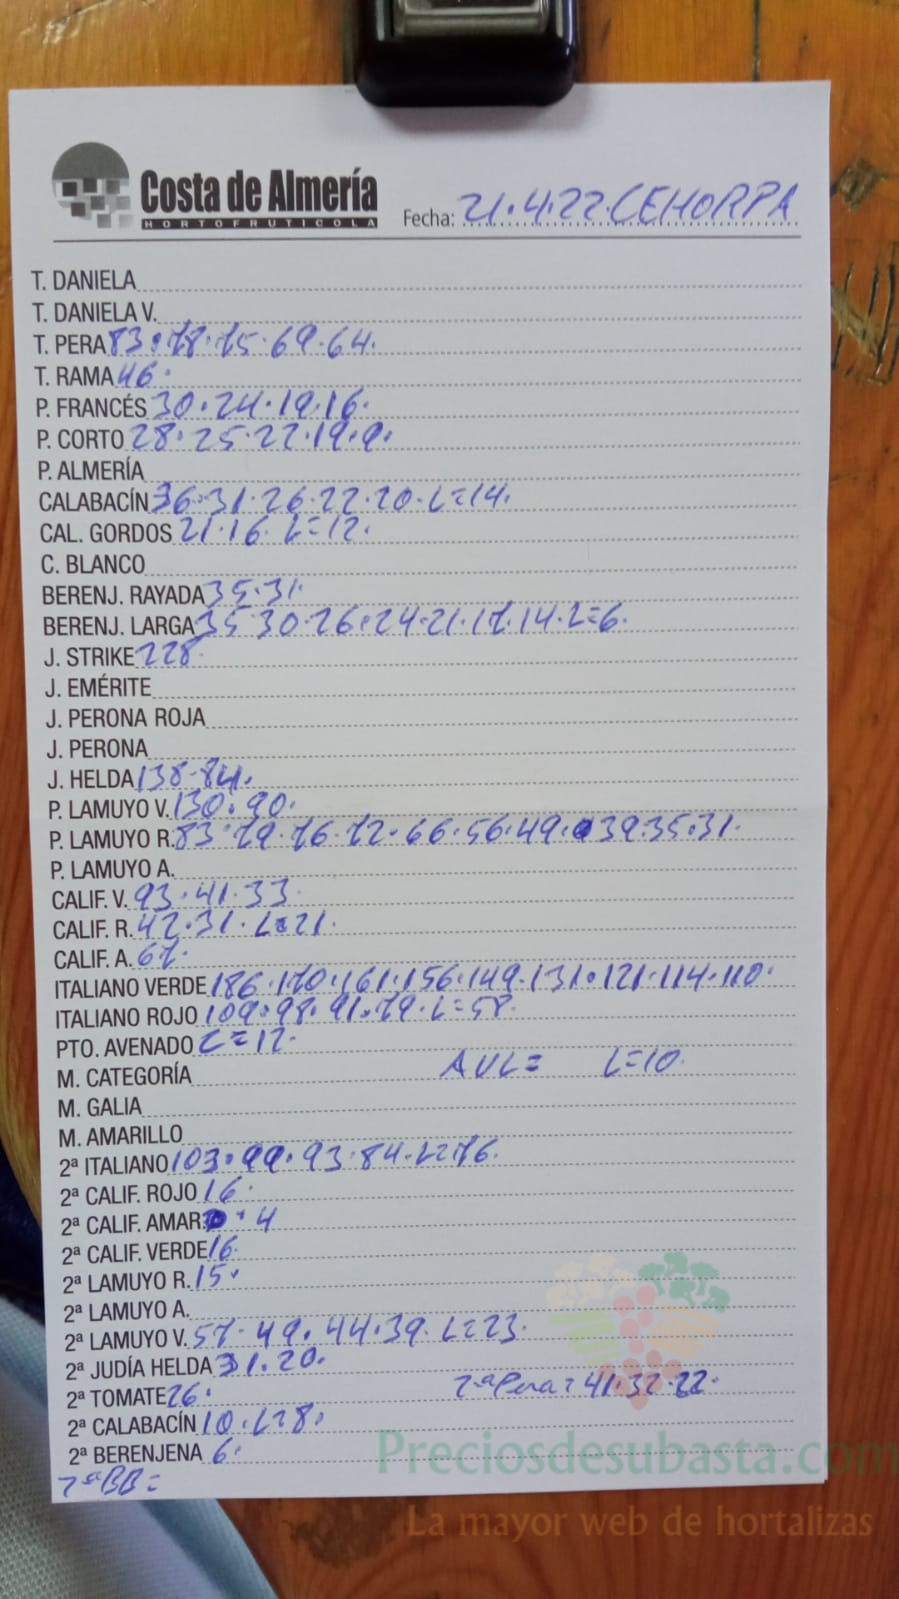 Costa de Almería
HORTOFRUTICOLA
Fecha: 21.4.22. CEHORPA
T. DANIELA
T. DANIELA V.
T. PERA 83.78.75.69.64.
T. RAMA 46.
P. FRANCÉS 30.24.19.16.
P. CORTO 28.25.22.19.9.
P. ALMERÍA
CALABACÍN 36.31.26.22.20.L=14.
CAL. GORDOS 21.16.L=12.
C. BLANCO
BERENJ. RAYADA 35.31.
BERENJ. LARGA 35 30.26.24.21.17.14.L=6.
J. STRIKE 228.
J. EMÉRITE
J. PERONA ROJA
J. PERONA
J. HELDA 138-84.
P. LAMUYO V. 130.90.
P. LAMUYO R. 83.79.76.72.66.56.49.39.35.31.
P. LAMUYO A.
CALIF. V. 93.41.33
CALIF. R. 42.31.L=21.
CALIF. A. 67.
ITALIANO VERDE 186.170.161.156.149.131.121.114.110.
ITALIANO ROJO 109.98.91.79.L=58.
PTO. AVENADO L=12.
M. CATEGORÍA AVL= L=10.
M. GALIA
M. AMARILLO
2ª ITALIANO 103.99.93.84.L=76.
2ª CALIF. ROJO 16.
2ª CALIF. AMAR. 4
2ª CALIF. VERDE 16.
2ª LAMUYO R. 15.
2ª LAMUYO A.
2ª LAMUYO V. 57.49.44.39.L=23.
2ª JUDÍA HELDA 31.20.
2ª TOMATE 26. 2ª Pera= 41.32.22.
2ª CALABACÍN 10.L=8.
2ª BERENJENA 6.
2ª BB=
Preciosdesubasta.com
La mayor web de hortalizas